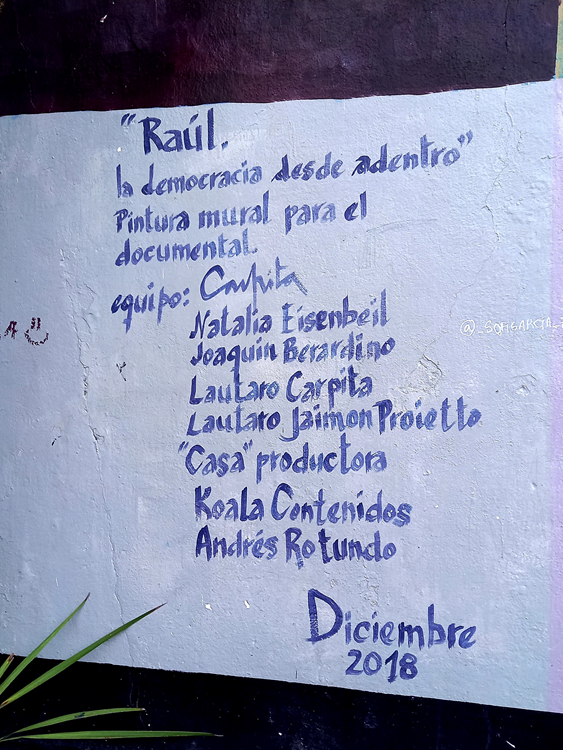 "Raúl.
la democracia desde adentro"
Pintura mural para el
documental.
equipo: Carpita
Natalia Eisenbeil
Joaquin Berardino
Lautaro Carpita
Lautaro Jaimon Proietto
"Casa" productora
Koala Contenidos
Andrés Rotundo
Diciembre
2018